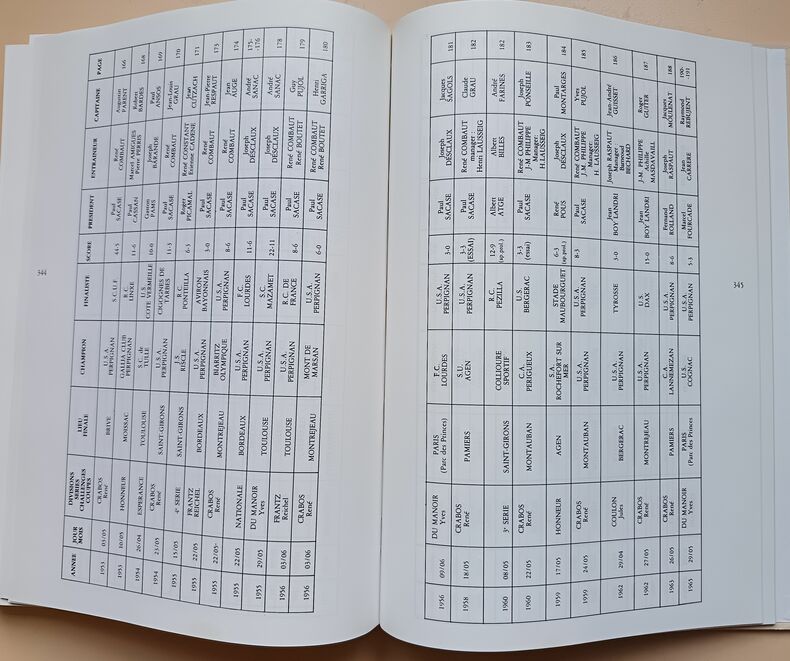 344
ANNEE JOUR MOIS DIVISIONS SERIES CHALLENGES COUPES LIEU FINALE CHAMPION FINALISTE SCORE PRESIDENT ENTRAINEUR CAPITAINE PAGE
1953 03/05 CRABOS René BRIVE U.S.A. PERPIGNAN S.C.U.F. 44-5 Paul SACASE René COMBAUT Augustin PARENT 166
1953 10/05 HONNEUR MOISSAC GALLIA CLUB PERPIGNAN R.C. LINXE 11-6 Paul CASSAN Marcel AMIGUES Pierre PERRIS Robert BARDES 168
1954 26/04 ESPERANCE TOULOUSE S.C. de TULLE U.S. COTE VERMEILLE 10-0 Gaston PAMS Joseph BARANDE Paul ANSOS 169
1954 23/05 CRABOS René SAINT-GIRONS U.S.A. PERPIGNAN CIGOGNES DE TARBES 11-3 Paul SACASE René COMBAUT Jean-Louis GRAU 170
1955 15/05 4e SERIE SAINT-GIRONS J.S. RISCLE R.C. PONTEILLA 6-3 Roger PICAMAL René CONSTANT Etienne CADENE Jean CUTZACH 171
1955 22/05 FRANTZ REICHEL BORDEAUX U.S.A. PERPIGNAN AVIRON BAYONNAIS 3-0 Paul SACASE René COMBAUT Jean-Pierre RESPAUT 173
1955 22/05 CRABOS René MONTREJEAU BIARRITZ OLYMPIQUE U.S.A. PERPIGNAN 8-6 Paul SACASE René COMBAUT Jean AUGE 174
1955 22/05 NATIONALE BORDEAUX U.S.A. PERPIGNAN F.C. LOURDES 11-6 Paul SACASE Joseph DESCLAUX André SANAC 175-176
1955 29/05 DU MANOIR Yves TOULOUSE U.S.A. PERPIGNAN S.C. MAZAMET 22-11 Paul SACASE Joseph DESCLAUX André SANAC 178
1956 03/06 FRANTZ Reichel TOULOUSE U.S.A. PERPIGNAN R.C. DE FRANCE 8-6 Paul SACASE René COMBAUT René BOUTET Guy PUJOL 179
1956 03/06 CRABOS René MONTREJEAU MONT DE MARSAN U.S.A. PERPIGNAN 6-0 Paul SACASE René COMBAUT René BOUTET Henri GARRIGA 180
1956 09/06 DU MANOIR Yves PARIS (Parc des Princes) F.C. LOURDES U.S.A. PERPIGNAN 3-0 Paul SACASE Joseph DESCLAUX Jacques SAGOLS 181
1958 18/05 CRABOS René PAMIERS S.U. AGEN U.S.A. PERPIGNAN 3-3 (ESSAI) Paul SACASE René COMBAUT manager: Henri LAUSSEIG Claude GRAU 182
1960 08/05 3e SERIE SAINT-GIRONS COLLIOURE SPORTIF R.C. PEZILLA 12-9 (ap.prol.) Albert ATGE Albert BILLES André FARINES 182
1960 22/05 CRABOS René MONTAUBAN C.A. PERIGUEUX U.S. BERGERAC 3-3 (essai) Paul SACASE René COMBAUT J-M PHILIPPE Manager: H. LAUSSEIG Joseph PONSEILLE 183
1959 17/05 HONNEUR AGEN S.A. ROCHEFORT SUR MER STADE MAUBOURGUET 6-3 (ap.prol.) René POUS Joseph DESCLAUX Paul MONTARGES 184
1959 24/05 CRABOS René MONTAUBAN U.S.A. PERPIGNAN U.S.A. PERPIGNAN 8-3 Paul SACASE René COMBAUT J.M. PHILIPPE Manager: H. LAUSSEIG Yves PUJOL 185
1962 29/04 COULON Jules BERGERAC U.S.A. PERPIGNAN TYROSSE 3-0 Jean BOY LANDRI Joseph RASPAUT Manager Barnard BECHARD Jean-André GUISSET 186
1962 27/05 CRABOS René MONTREJEAU U.S.A. PERPIGNAN U.S. DAX 15-0 Jean BOY LANDRI J-M. PHILIPPE Achille MASDAVAILL Roger GUITER 187
1963 26/05 CRABOS René PAMIERS C.A. LANNEMEZAN U.S.A. PERPIGNAN 8-6 Fernand ROLLAND Joseph RASPAUT Jacques MOULENAT 188
1965 29/05 DU MANOIR Yves PARIS (Parc des Princes) U.S. COGNAC U.S.A. PERPIGNAN 5-3 Marcel FOURCADE Jean CARRERE Raymond REBUJENT 190-191
345